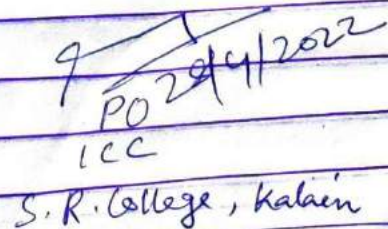 PO 28/4/2022
ICC
S.R. College, Kalain